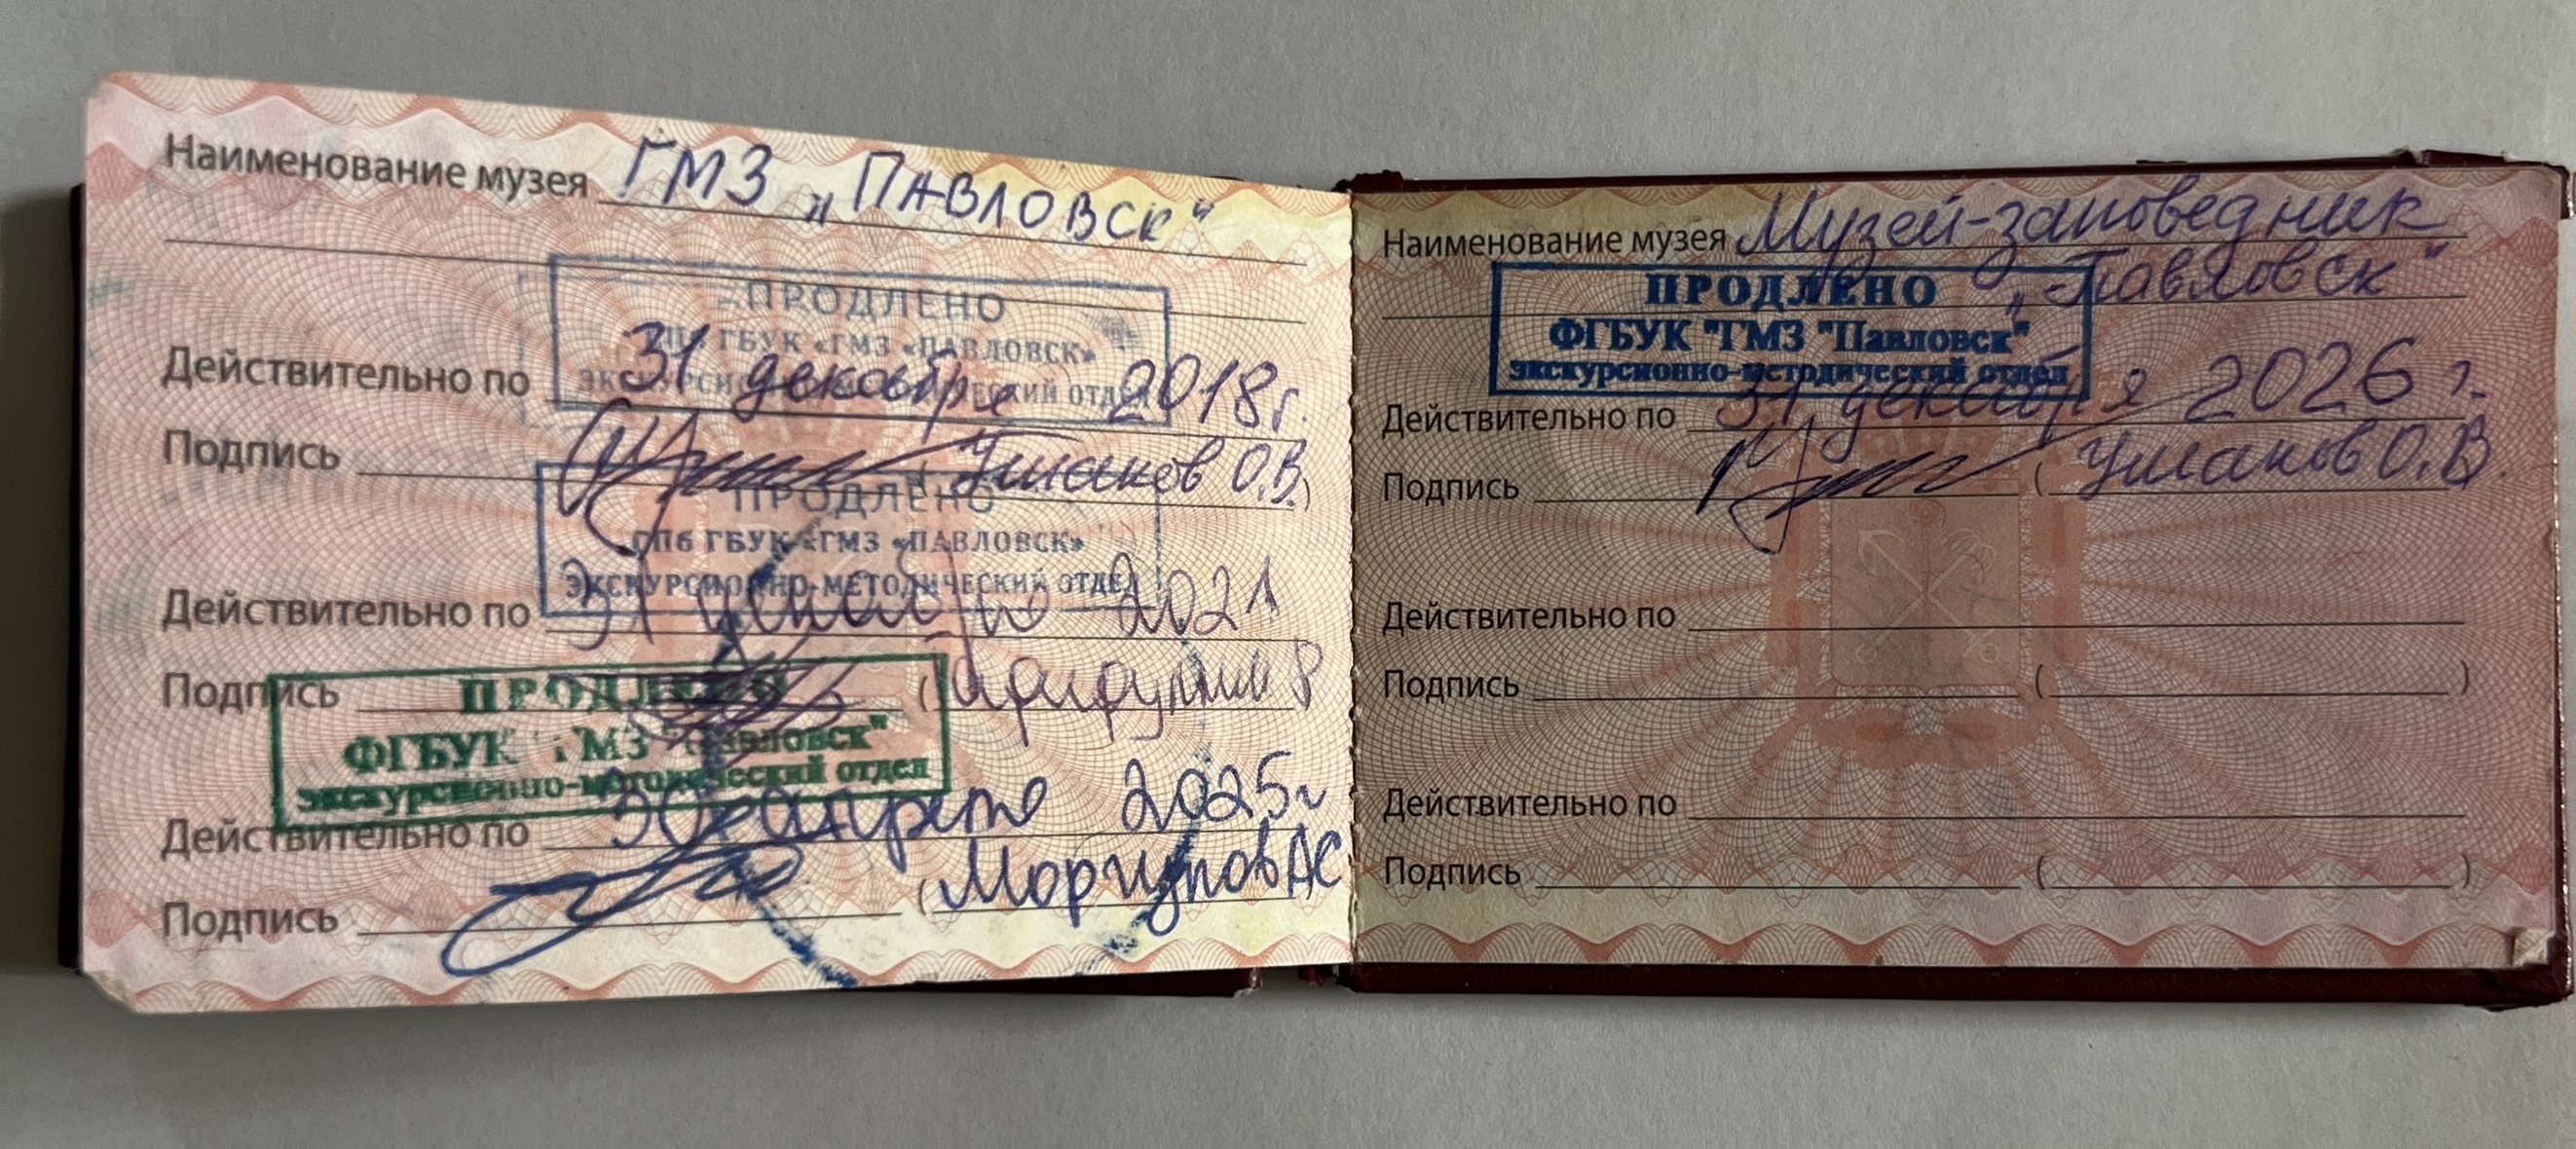 Наименование музея ГМЗ „Павловск“
ПРОДЛЕНО
СПб ГБУК «ГМЗ «ПАВЛОВСК»
ЭКСКУРСИОННО-МЕТОДИЧЕСКИЙ ОТДЕЛ
Действительно по 31 декабря 2018г.
Подпись (Ушаков О.В.)
ПРОДЛЕНО
СПб ГБУК «ГМЗ «ПАВЛОВСК»
ЭКСКУРСИОННО-МЕТОДИЧЕСКИЙ ОТДЕЛ
Действительно по 31 декабря 2021
Подпись (
ПРОДЛЕНО
ФГБУК "ГМЗ "Павловск"
экскурсионно-методический отдел
Действительно по 30 апреля 2025г
Подпись (Моргунов АС
Наименование музея Музей-заповедник
„Павловск“
ПРОДЛЕНО
ФГБУК "ГМЗ "Павловск"
экскурсионно-методический отдел
Действительно по 31 декабря 2026 г.
Подпись (Ушаков О.В.
Действительно по
Подпись ( )
Действительно по
Подпись ( )